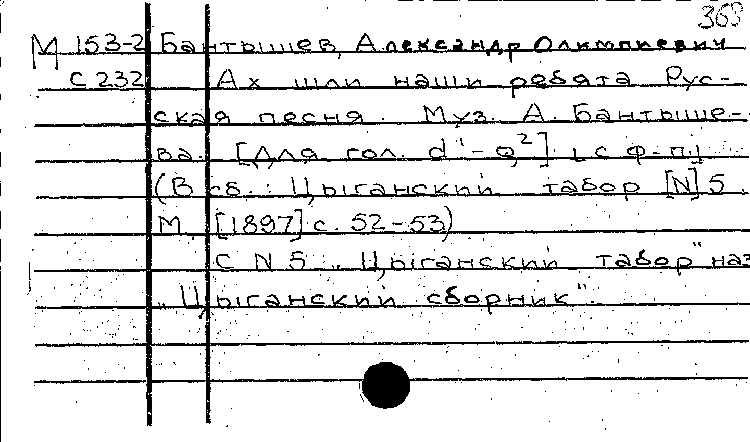 368
М 153-2 Бантышев, Александр Олимпиевич
С 232 Ах шли наши ребята Рус-
ская песня. Муз. А. Бантыше-
ва. [Для гол. d'-g²] [с ф-п.]
(В сб.: Цыганский табор [N] 5.
М., [1897] с. 52-53)
С N 5 „Цыганский табор" наз
„Цыганский сборник".